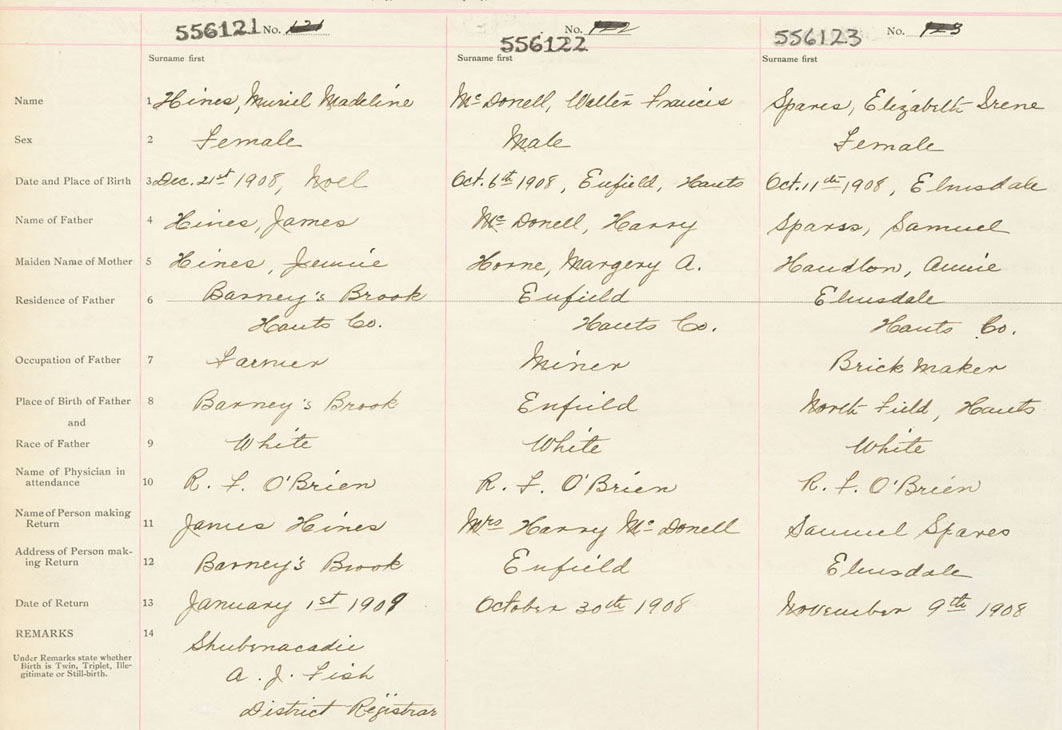 556121 No. 121
556122 No. 122
556123 No. 123
Surname first Surname first Surname first
Name 1 Hines, Muriel Madeline McDonell, Walter Francis Spares, Elizabeth Irene
Sex 2 Female Male Female
Date and Place of Birth 3 Dec. 21st 1908, Noel Oct. 6th 1908, Enfield, Hants Oct. 11th 1908, Elmsdale
Name of Father 4 Hines, James McDonell, Harry Spares, Samuel
Maiden Name of Mother 5 Hines, Jennie Horne, Margery A. Handlon, Annie
Residence of Father 6 Barney's Brook Enfield Elmsdale
Hants Co. Hants Co. Hants Co.
Occupation of Father 7 Farmer Miner Brick Maker
Place of Birth of Father 8 Barney's Brook Enfield North Field, Hants
and
Race of Father 9 White White White
Name of Physician in
attendance 10 R. F. O'Brien R. F. O'Brien R. F. O'Brien
Name of Person making
Return 11 James Hines Mrs Harry McDonell Samuel Spares
Address of Person mak-
ing Return 12 Barney's Brook Enfield Elmsdale
Date of Return 13 January 1st 1909 October 30th 1908 November 9th 1908
REMARKS 14 Shubenacadie
Under Remarks state whether
Birth is Twin, Triplet, Ille-
gitimate or Still-birth.
A. J. Fish
District Registrar